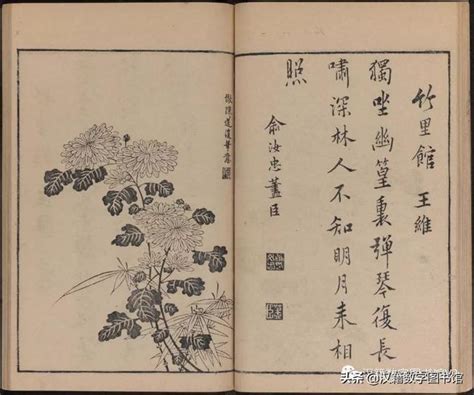 竹里館 王維
獨坐幽篁裏彈琴復長
嘯深林人不知明月来相
照
俞汝忠藎臣
倣陳道復筆意
头条 @汉籍数字图书馆